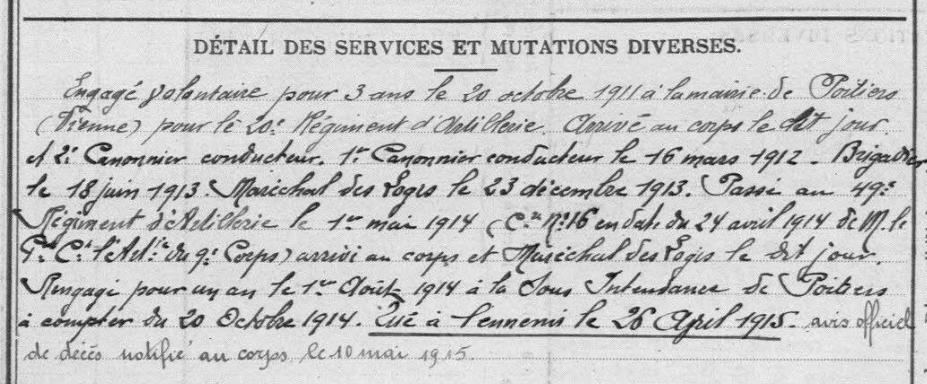 DÉTAIL DES SERVICES ET MUTATIONS DIVERSES.
Engagé volontaire pour 3 ans le 20 octobre 1911 à la mairie de Poitiers
(Vienne) pour le 20e Régiment d'Artillerie. Arrivé au corps le dit jour
et 2e Canonnier conducteur. 1er Canonnier conducteur le 16 mars 1912. Brigadier
le 18 juin 1913. Maréchal des Logis le 23 décembre 1913. Passé au 49e
Régiment d'Artillerie le 1er mai 1914 (Con No 16 en date du 24 avril 1914 de M. le
Gal Ct l'Artie du 9e Corps) arrivé au corps et Maréchal des Logis le dit jour.
Rengagé pour un an le 1er Août 1914 à la Sous Intendance de Poitiers
à compter du 20 Octobre 1914. Tué à l'ennemi le 26 April 1915. avis officiel
de décès notifié au corps le 10 mai 1915